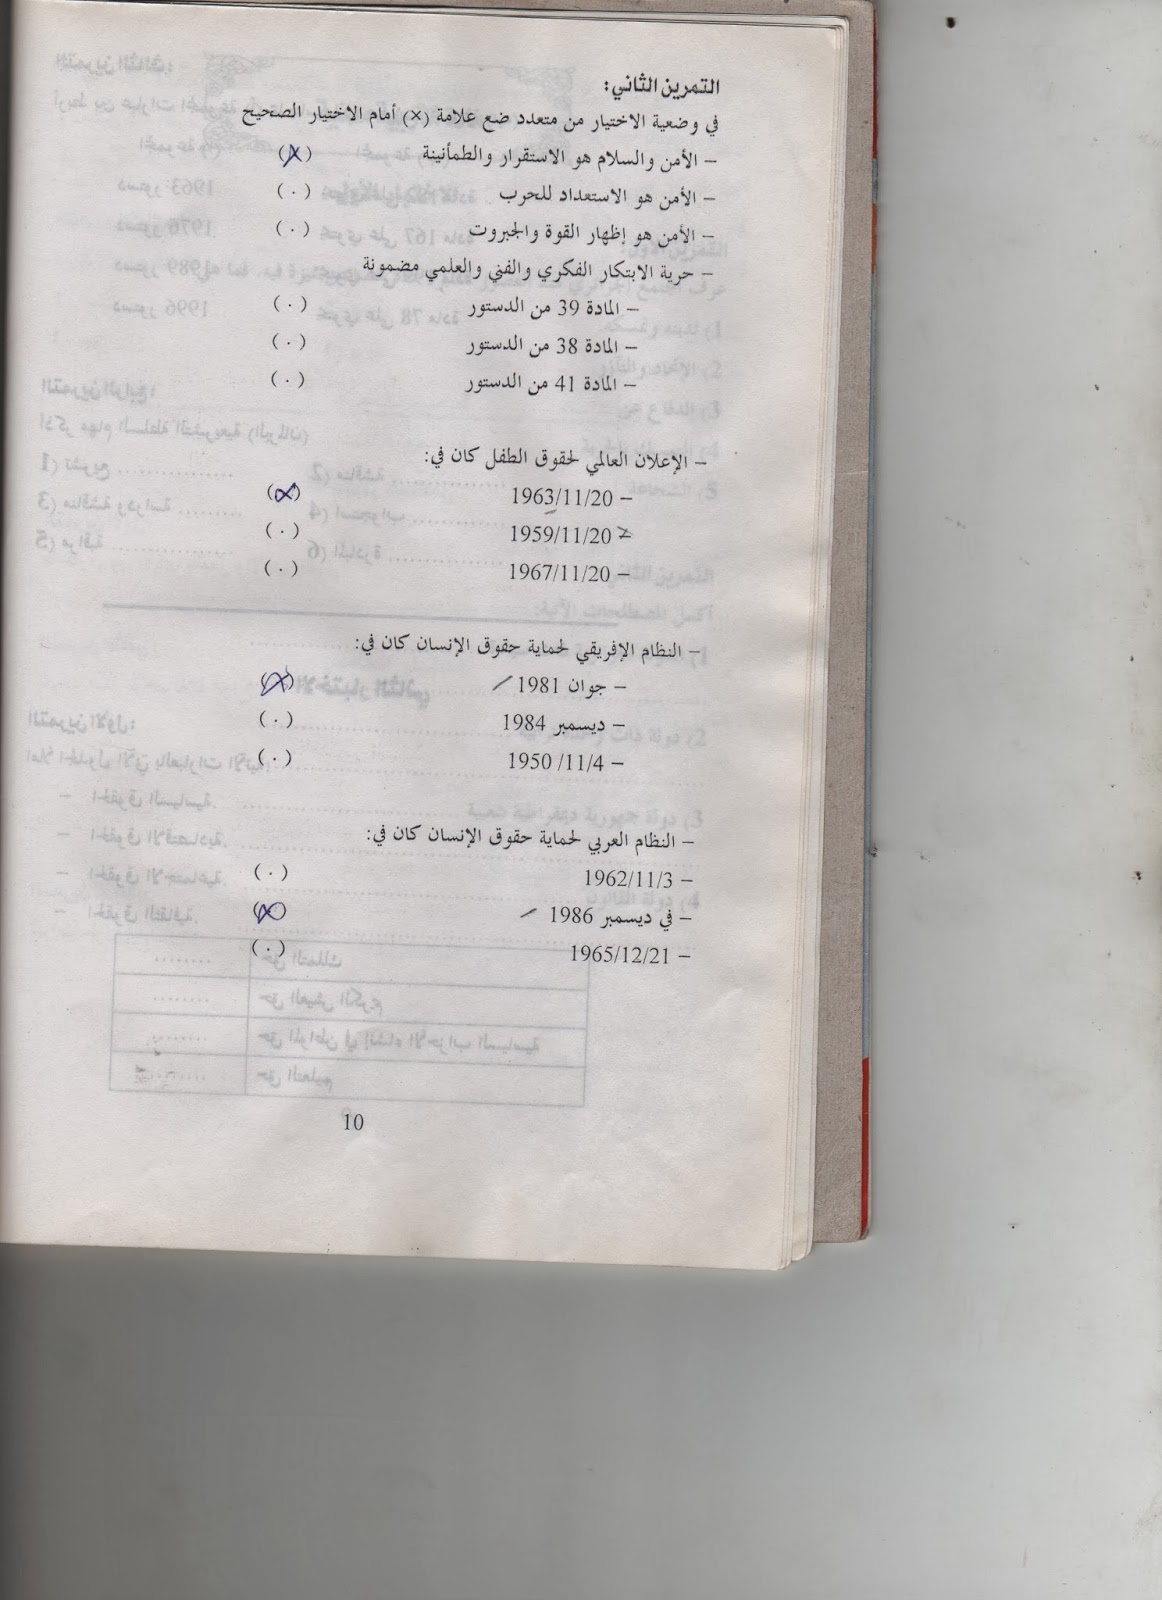 التمرين الثاني:
في وضعية الاختيار من متعدد ضع علامة (×) أمام الاختيار الصحيح
– الأمن والسلام هو الاستقرار والطمأنينة (×)
– الأمن هو الاستعداد للحرب (٠)
– الأمن هو إظهار القوة والجبروت (٠)
– حرية الابتكار الفكري والفني والعلمي مضمونة
– المادة 39 من الدستور (٠)
– المادة 38 من الدستور (٠)
– المادة 41 من الدستور (٠)
– الإعلان العالمي لحقوق الطفل كان في:
– 1963/11/20 (×)
– 1959/11/20 (٠)
– 1967/11/20 (٠)
– النظام الإفريقي لحماية حقوق الإنسان كان في:
– جوان 1981 (×)
– ديسمبر 1984 (٠)
– 1950 /11/4 (٠)
– النظام العربي لحماية حقوق الإنسان كان في:
– 1962/11/3 (٠)
– في ديسمبر 1986 (×)
– 1965/12/21 (٠)
10